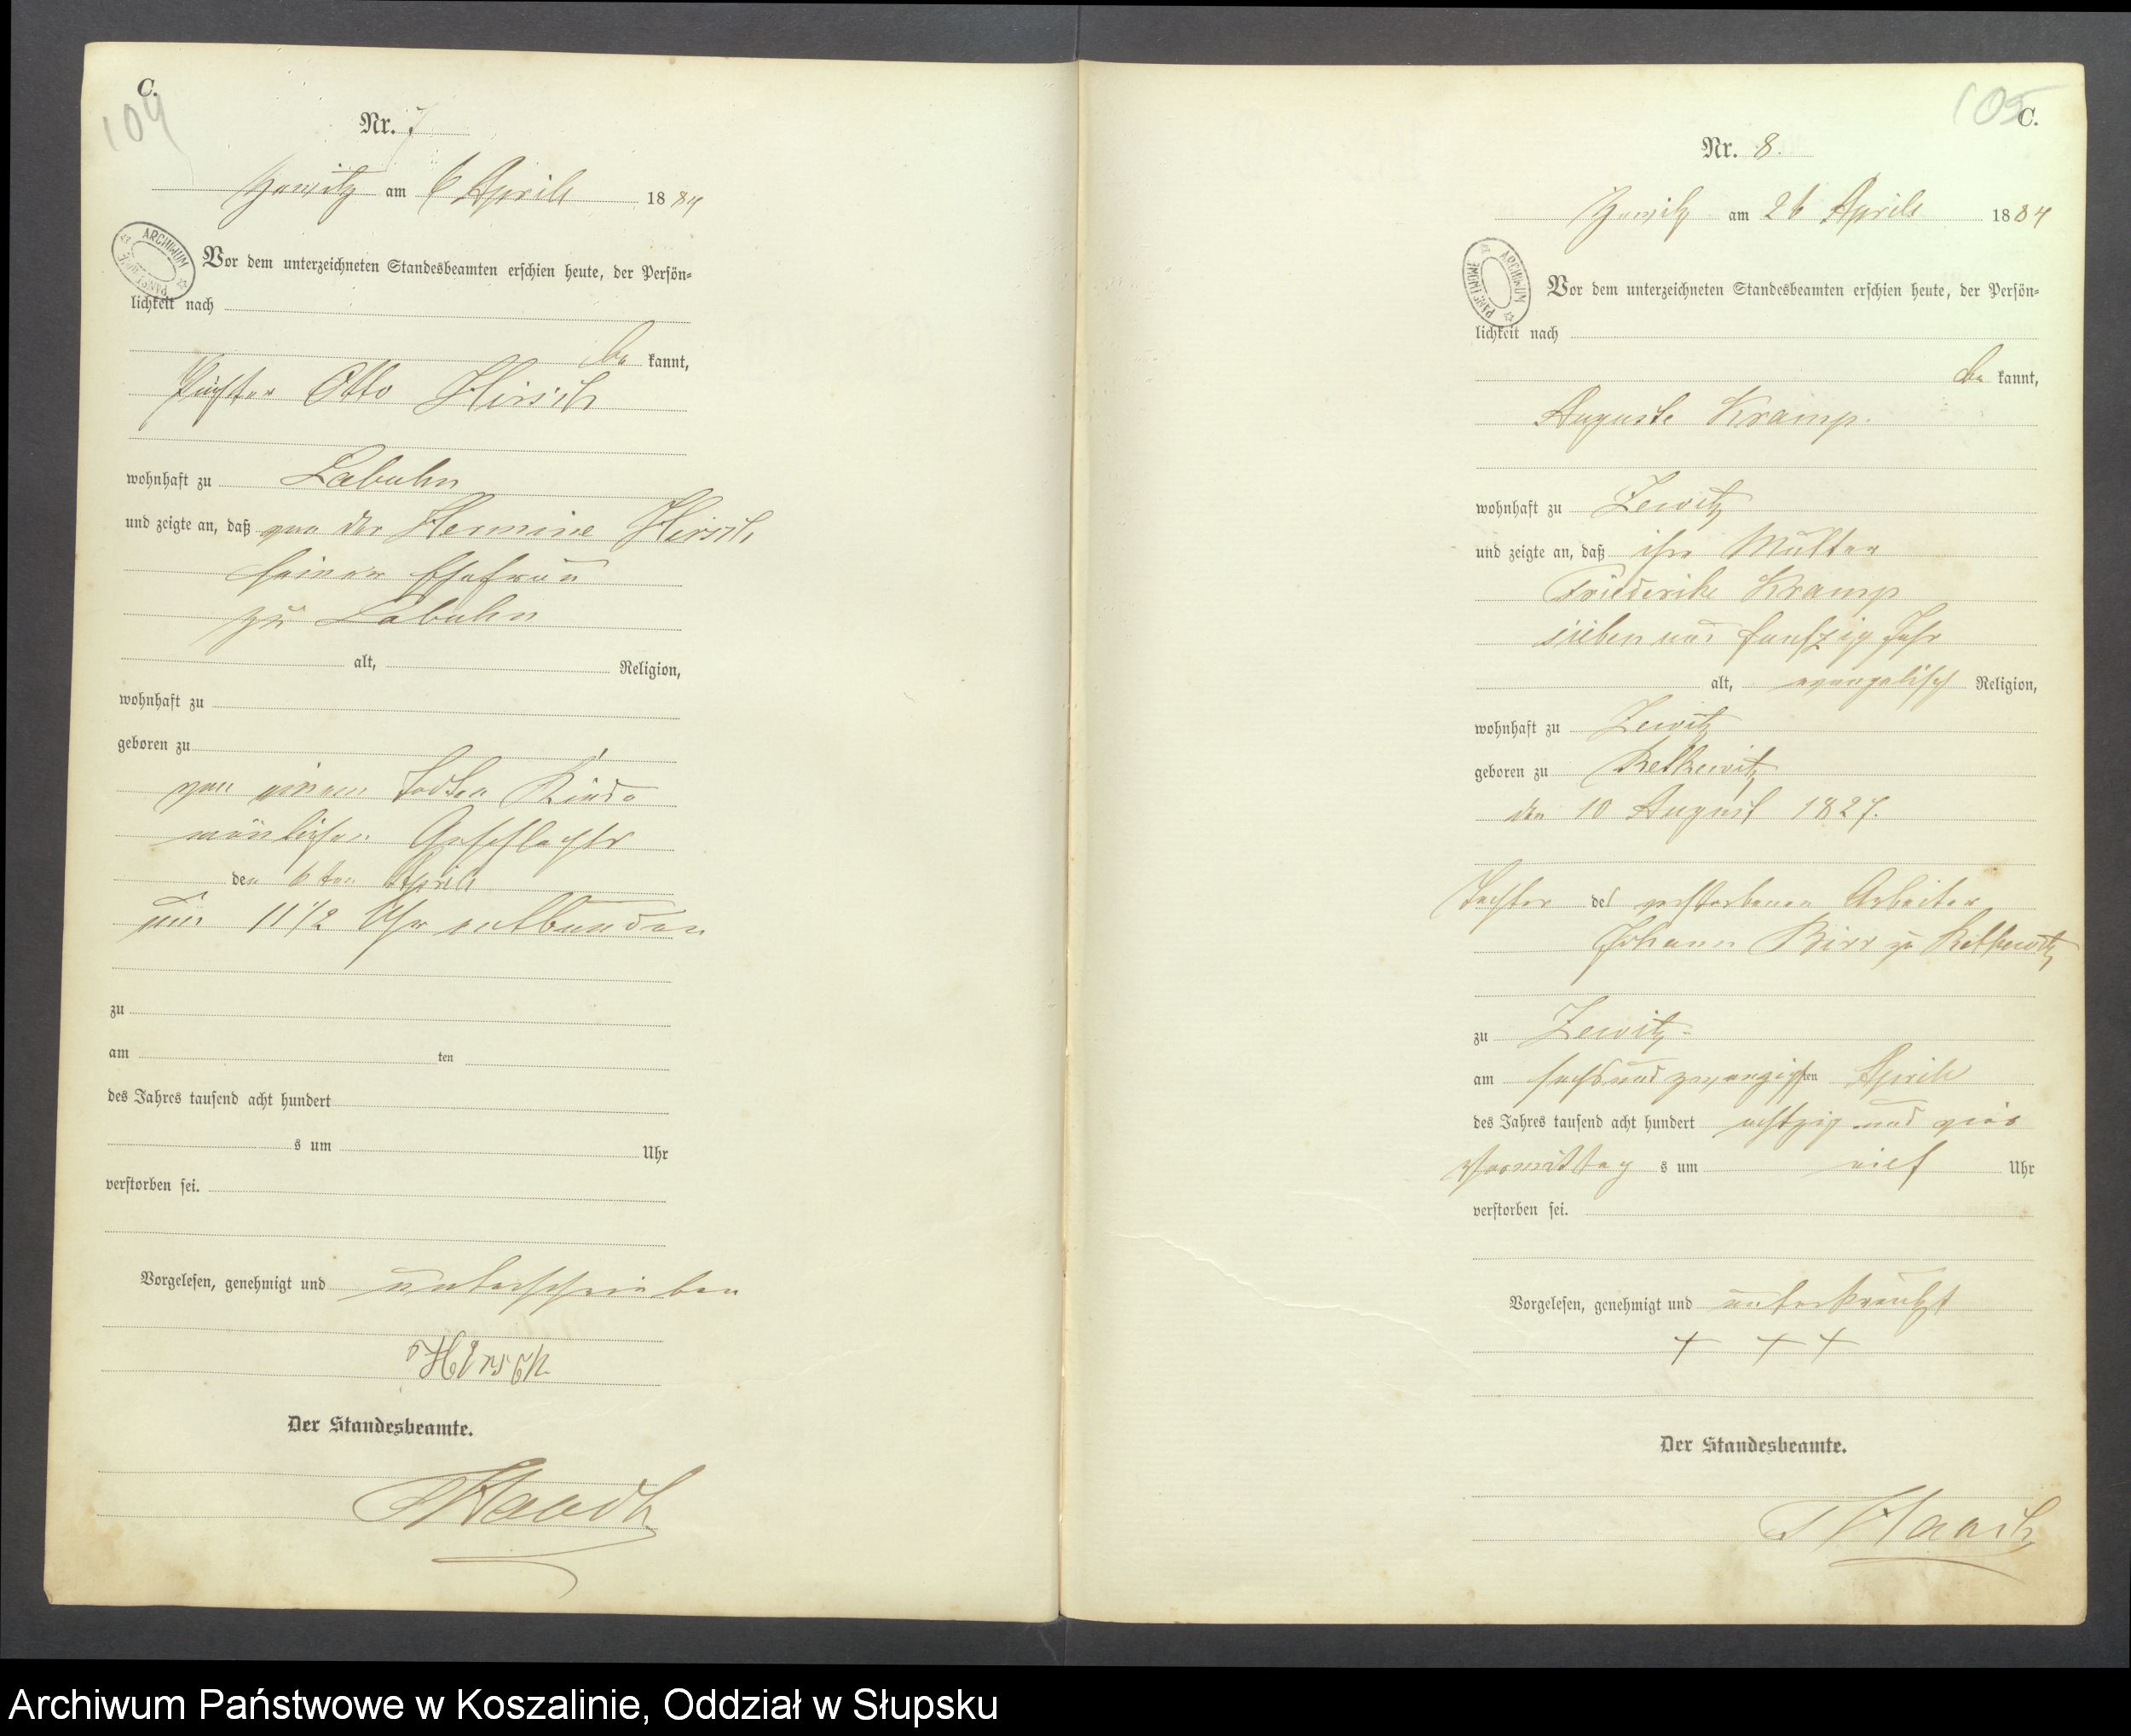 C.
104
Nr. 7
Zewitz am 6 Aprill 1884
ARCHIWUM PAŃSTWOWE
Vor dem unterzeichneten Standesbeamten erschien heute, der Persön-
lichkeit nach
be kannt,
Otto Hirsch
wohnhaft zu Labuhn
und zeigte an, daß von der Hermine Hirsch
seiner Ehefrau
zu Labuhn
alt, Religion,
wohnhaft zu
geboren zu
von einem todten Kinde
mänlichen Geschlechts
den 6ten Aprill
um 11 1/2 Uhr entbunden
zu
am ten
des Jahres tausend acht hundert
s um Uhr
verstorben sei.
Vorgelesen, genehmigt und unterschrieben
Hirsch
Der Standesbeamte.
105
C.
Nr. 8.
Zewitz am 26 Aprill 1884
ARCHIWUM PAŃSTWOWE
Vor dem unterzeichneten Standesbeamten erschien heute, der Persön-
lichkeit nach
be kannt,
Auguste Kramp.
wohnhaft zu Zewitz
und zeigte an, daß ihre Mutter
Friederike Kramp
sieben und funfzig Jahr
alt, evangelisch Religion,
wohnhaft zu Zewitz
geboren zu Rettkewitz
den 10 August 1827.
Tochter des verstorbenen Arbeiter
Johann Birr zu Rettkewitz
zu Zewitz
am sechsundzwanzigsten Aprill
des Jahres tausend acht hundert achtzig und vier
Vormittag s um elf Uhr
verstorben sei.
Vorgelesen, genehmigt und unterkreutzt
+ + +
Der Standesbeamte.
Archiwum Państwowe w Koszalinie, Oddział w Słupsku